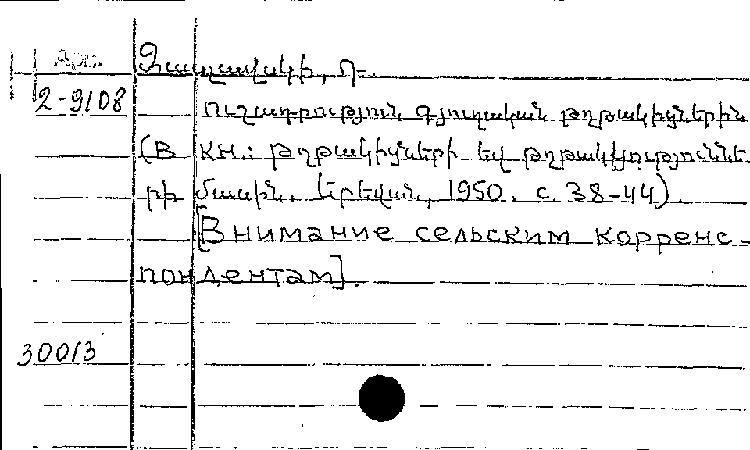 Арм.
Զասլավսկի, Դ.
2-9108
Ուշադրություն գյուղական թղթակիցներին
(В кн.: Թղթակիցների եվ թղթակցություննե-
րի մասին. Երեվան, 1950. с. 38-44).
[Внимание сельским корренс-
пондентам].
30013